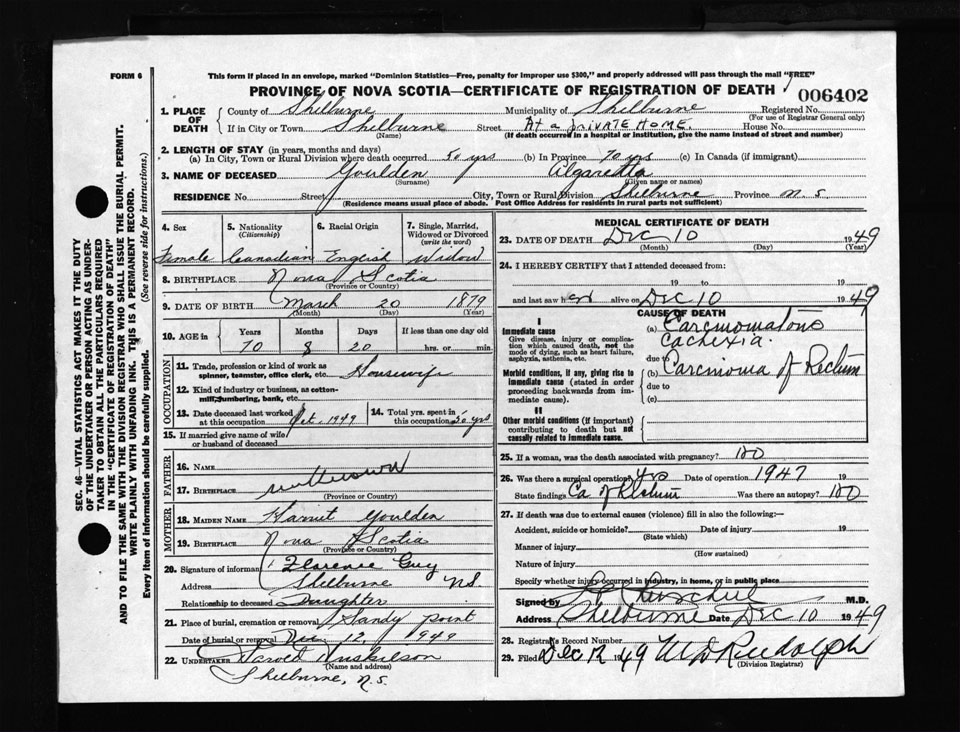 FORM 6
This form if placed in an envelope, marked "Dominion Statistics—Free, penalty for improper use $300," and properly addressed will pass through the mail "FREE"
PROVINCE OF NOVA SCOTIA—CERTIFICATE OF REGISTRATION OF DEATH
006402
1. PLACE OF DEATH
County of Shelburne Municipality of Shelburne Registered No.
(For use of Registrar General only)
If in City or Town Shelburne Street At a private Home. House No.
(Name) (If death occurred in a hospital or institution, give the name instead of street and number)
2. LENGTH OF STAY (in years, months and days)
(a) In City, Town or Rural Division where death occurred 50 yrs (b) In Province 70 yrs (c) In Canada (if immigrant)
3. NAME OF DECEASED Goulden Algaretta
(Surname) (Given name or names)
RESIDENCE No. Street City, Town or Rural Division Shelburne Province N.S
(Residence means usual place of abode. Post Office Address for residents in rural parts not sufficient)
4. Sex Female
5. Nationality (Citizenship) Canadian
6. Racial Origin English
7. Single, Married, Widowed or Divorced (write the word) Widow
8. BIRTHPLACE Nova Scotia
(Province or Country)
9. DATE OF BIRTH March 20 1879
(Month) (Day) (Year)
10. AGE in Years Months Days If less than one day old
70 8 20 hrs. or min.
OCCUPATION
11. Trade, profession or kind of work as spinner, teamster, office clerk, etc. Housewife
12. Kind of industry or business, as cotton-mill, lumbering, bank, etc.
13. Date deceased last worked at this occupation Oct. 1949
14. Total yrs. spent in this occupation 50 yrs
15. If married give name of wife or husband of deceased
FATHER
16. NAME
17. BIRTHPLACE
(Province or Country)
MOTHER
18. MAIDEN NAME Harriet Goulden
19. BIRTHPLACE Nova Scotia
(Province or Country)
20. Signature of informant Florence Guy
Address Shelburne NS.
Relationship to deceased Daughter
21. Place of burial, cremation or removal Sandy Point
Date of burial or removal Dec. 12, 1949
22. UNDERTAKER Harold Huskilson
(Name and address)
Shelburne, N.S.
MEDICAL CERTIFICATE OF DEATH
23. DATE OF DEATH Dec 10 1949
(Month) (Day) (Year)
24. I HEREBY CERTIFY that I attended deceased from:
19 to 19
and last saw her alive on Dec 10 1949
CAUSE OF DEATH
I
Immediate cause
Give disease, injury or complication which caused death, not the mode of dying, such as heart failure, asphyxia, asthenia, etc.
(a) Carcinomatous
Cachexia.
due to
Morbid conditions, if any, giving rise to immediate cause (stated in order proceeding backwards from immediate cause).
(b) Carcinoma of Rectum
due to
(c)
II
Other morbid conditions (if important) contributing to death but not causally related to immediate cause.
25. If a woman, was the death associated with pregnancy? No
26. Was there a surgical operation? yes Date of operation 1947 19
State findings Ca of Rectum Was there an autopsy? No
27. If death was due to external causes (violence) fill in also the following:—
Accident, suicide or homicide? Date of injury 19
(State which)
Manner of injury
(How sustained)
Nature of injury
Specify whether injury occurred in industry, in home, or in public place
Signed by M.D.
Address Shelburne Date Dec 10 1949
28. Registrar's Record Number
29. Filed Dec 12 1949 Rudolph
(Division Registrar)
SEC. 46—VITAL STATISTICS ACT MAKES IT THE DUTY
OF THE UNDERTAKER OR PERSON ACTING AS UNDERTAKER
TO OBTAIN ALL THE PARTICULARS REQUIRED
IN THE "CERTIFICATE OF REGISTRATION OF DEATH"
AND TO FILE THE SAME WITH THE DIVISION REGISTRAR WHO SHALL ISSUE THE BURIAL PERMIT.
WRITE PLAINLY WITH UNFADING INK. THIS IS A PERMANENT RECORD.
Every item of information should be carefully supplied. (See reverse side for instructions.)